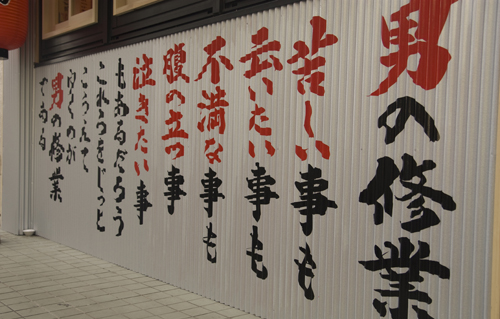 男の修業
苦しい事も
云いたい事も
不満な事も
腹の立つ事
泣きたい事
もあるだろう
これらをじっと
こらえて
ゆくのが
男の修業
である